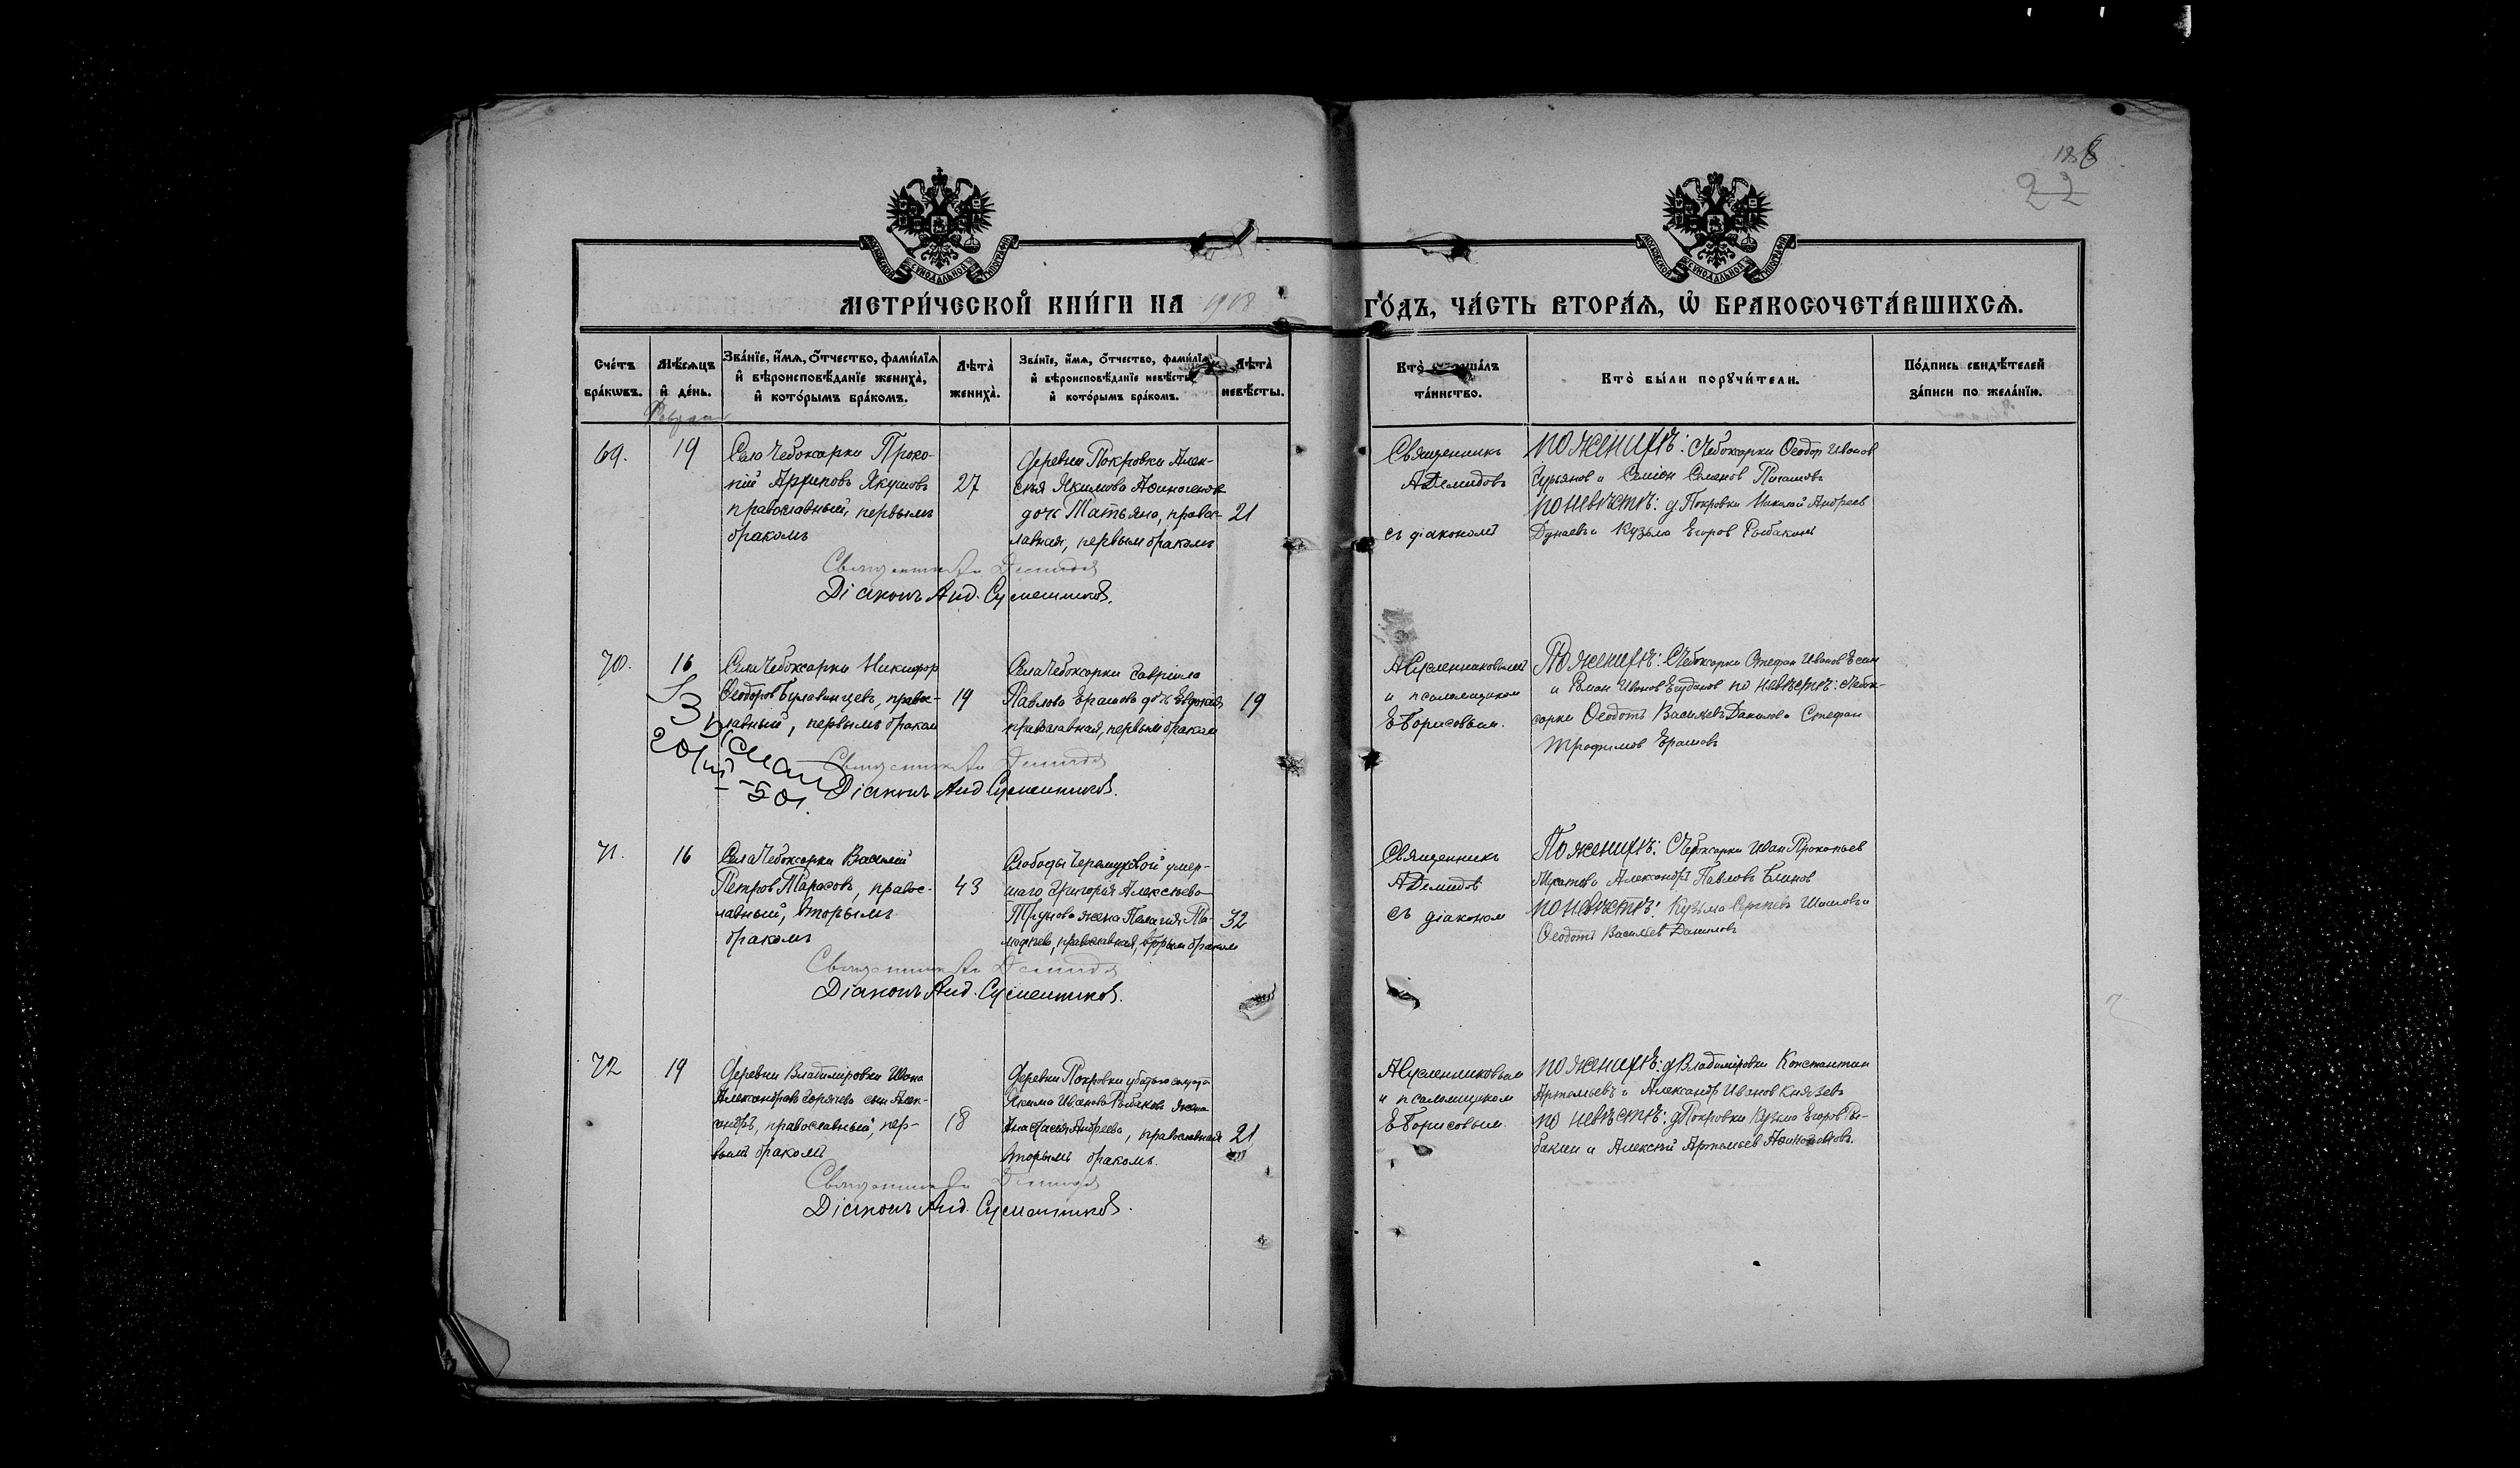 188
22
МОСКОВСКОЙ СѴНОДАЛЬНОЙ ТИПОГРАФІИ
МОСКОВСКОЙ СѴНОДАЛЬНОЙ ТИПОГРАФІИ
МЕТРИ́ЧЕСКОЙ КНИ́ГИ НА 1918 ГО́ДЪ, ЧА́СТЬ ВТОРА́Ѧ, Ѡ҆ БРАКОСОЧЕТА́ВШИХСѦ.
Сче́тъ бра́кѡвъ.
Мѣ́сѧцъ и҆ де́нь.
Зва́нїе, и҆́мѧ, ѻ҆́тчество, фами́лїѧ и҆ вѣроисповѣ́данїе жениха̀, и҆ кото́рымъ бра́комъ.
Лѣ́та̀ жениха̀.
Зва́нїе, и҆́мѧ, ѻ҆́тчество, фами́лїѧ и҆ вѣроисповѣ́данїе невѣ́сты, и҆ кото́рымъ бра́комъ.
Лѣ́та̀ невѣ́сты.
Кто̀ та́инство.
Кто̀ бы́ли порꙋчи́тели.
По́дпись свидѣ́телей за́писи по жела́нїю.
Февраль
69.
19
Села Чебоксарки Проко-
пій Архиповъ Якушовъ
православный, первымъ
бракомъ
27
Деревни Покровки Алек-
сѣя Якимова Аѳиногенова
дочь Татьяна, правос-
лавная, первым бракомъ
21
Священникъ
А Демидовъ
съ діакономъ
По женихѣ: с Чебоксарки Ѳеодор Иванов
Гурьянов и Семіон Семенов
По невѣстѣ: д. Покровки Николай Андреев
Дунаевъ и Кузьма Егоров Рыбакинъ
Священникъ Ал Демидовъ
Діаконъ Анд. Сумешников.
70.
16
Села Чебоксарки Никифор
Ѳеодоров Булавинцевъ, правос-
лавный, первымъ браком
19
Села Чебоксарки Гавриила
Павлова Ерашова дочь Евдокия
православная, первым браком
19
и псаломщиком
Е Борисовым.
По женихѣ: с Чебоксарки Стефан Иванов Есин
и Роман Иванов по невѣстѣ: с Чебок-
сарки Ѳеодотъ Васильевъ Данилов и Стефан
Трофимов Ерашовъ
Священникъ Ал Демидовъ
Діаконъ Анд Сумешников.
71.
16
Села Чебоксарки Василий
Петров Тарасовъ, правос-
лавный, вторымъ
бракомъ
43
Слободы Черемуховой умер-
шаго Григория Алексѣева
жена Пелагия
православная, вторым браком
32
Священникъ
А Демидов
съ діаконом
По женихѣ: с Чебоксарки Иван Прокопьев
и Александръ Павловъ Блинов
по невѣстѣ: Кузьма Сергѣевъ
Ѳеодотъ Васильев Даниловъ
Священникъ Ал Демидов
Діаконъ Анд. Сумешников.
72
19
Деревни Владиміровки Ивана
Александрова Горячева сын Алек-
сандръ, православный, пер-
вымъ бракомъ
18
Деревни Покровки убитого солдата
Якима Иванова Рыбакова жена
Анастасия Андреева, православная
вторымъ бракомъ.
21
и псаломщиком
Е Борисовым.
По женихѣ: д Владиміровки Константин
Артемьевъ и Александр Иванов Князевъ
по невѣстѣ: д Покровки Кузьма Егоров Ры-
бакин и Алексѣй Артемьев Аѳиногеновъ.
Священникъ Ал Демидов
Діаконъ Анд. Сумешников.